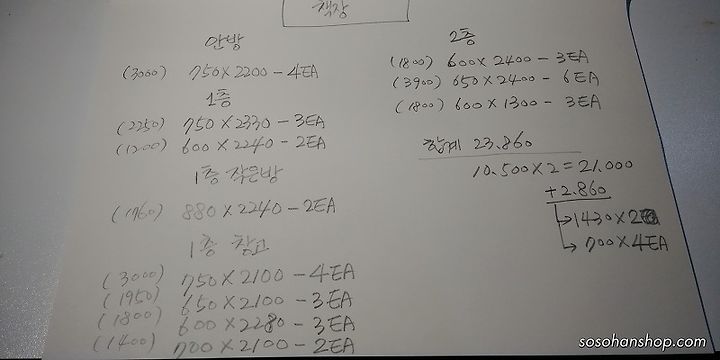 책장
안방
(3000) 750×2200-4EA
1층
(2250) 750×2330-3EA
(1200) 600×2240-2EA
1층 작은방
(1760) 880×2240-2EA
1층 창고
(3000) 750×2100-4EA
(1950) 650×2100-3EA
(1800) 600×2280-3EA
(1400) 700×2100-2EA
2층
(1800) 600×2400-3EA
(3900) 650×2400-6EA
(1800) 600×1300-3EA
합계 23.860
10.500×2=21.000
+2.860
→1430×2
→700×4EA
sosohanshop.com